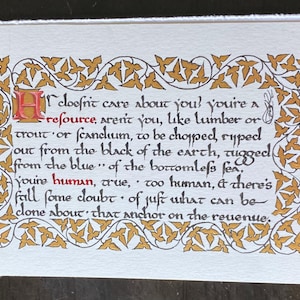 HR doesn't care about you? you're a
resource, aren't you, like lumber or
trout · or scandium, to be chopped, ripped
out from the black of the earth, tugged
from the blue of the bottomless sea,
you're human, true, · too human, & there's
still some doubt · of just what can be
done about · that anchor on the revenue.